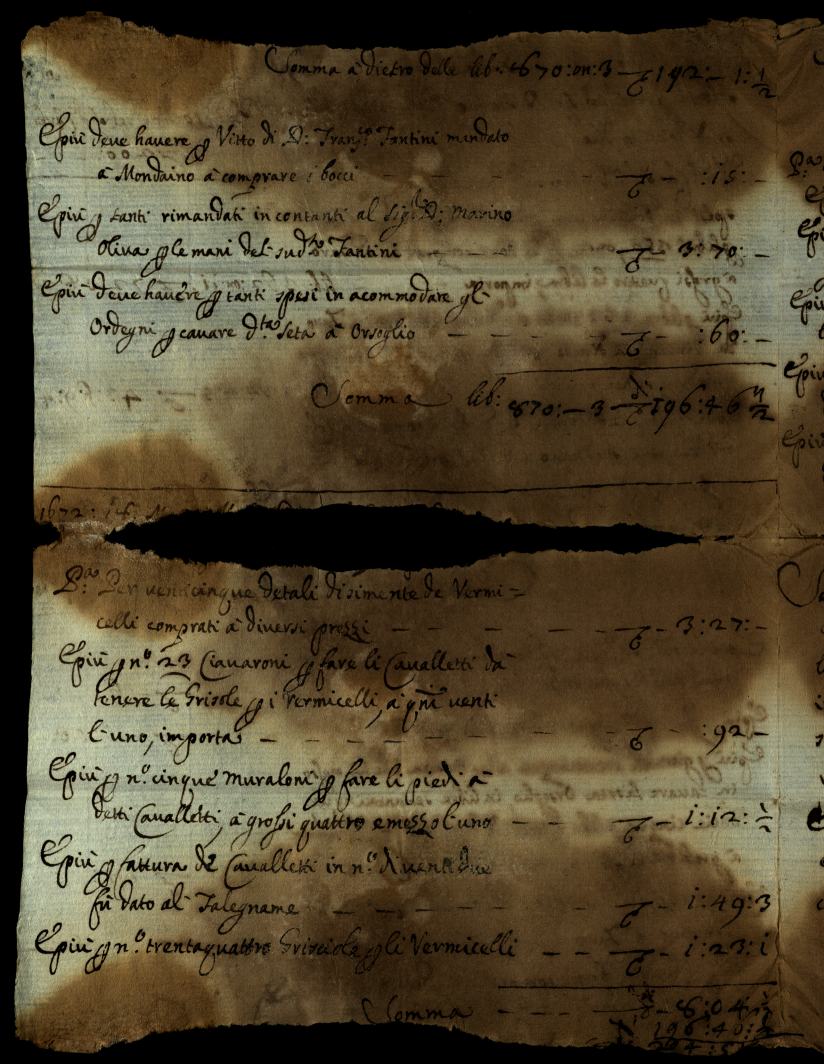 Somma a dietro delle lib: 870:on:3 — 192:— 1:½
E più deve havere p Vitto di D: Fran:co Fantini mandato
à Mondaino à comprare i bocci — — — — :15: —
E più p tanti rimandati in contanti al Sig:r D: Marino
Oliva p le mani del sud:to Fantini — — — — 3:70: —
E più deve havere p tanti spesi in acommodare gl
Ordegni p cavare d:ta seta à Orsoglio — — — — :60: —
Somma lib: 870:— 3 — 196:46 ½
1672:
P:a Per venticinque detali di simente de Vermi=
celli comprati à diversi prezzi — — — — 3:27: —
E più p n:o 23 Ciavaroni p fare li Cavalletti da
tenere le Grisole p i Vermicelli, à q:ni venti
l'uno, importa — — — — — :92 —
E più p n:o cinque Muraloni p fare li piedi à
detti Cavalletti, à grossi quattro e mezzo l'uno — — — 1:12: ½
E più p fattura de Cavalletti in n:o di ventidue
fù dato al Falegname — — — — — 1:49:3
E più p n:o trentaquattro Grisciole p gli Vermicelli — — — 1:23:1
Somma — — 8:04
196:40: